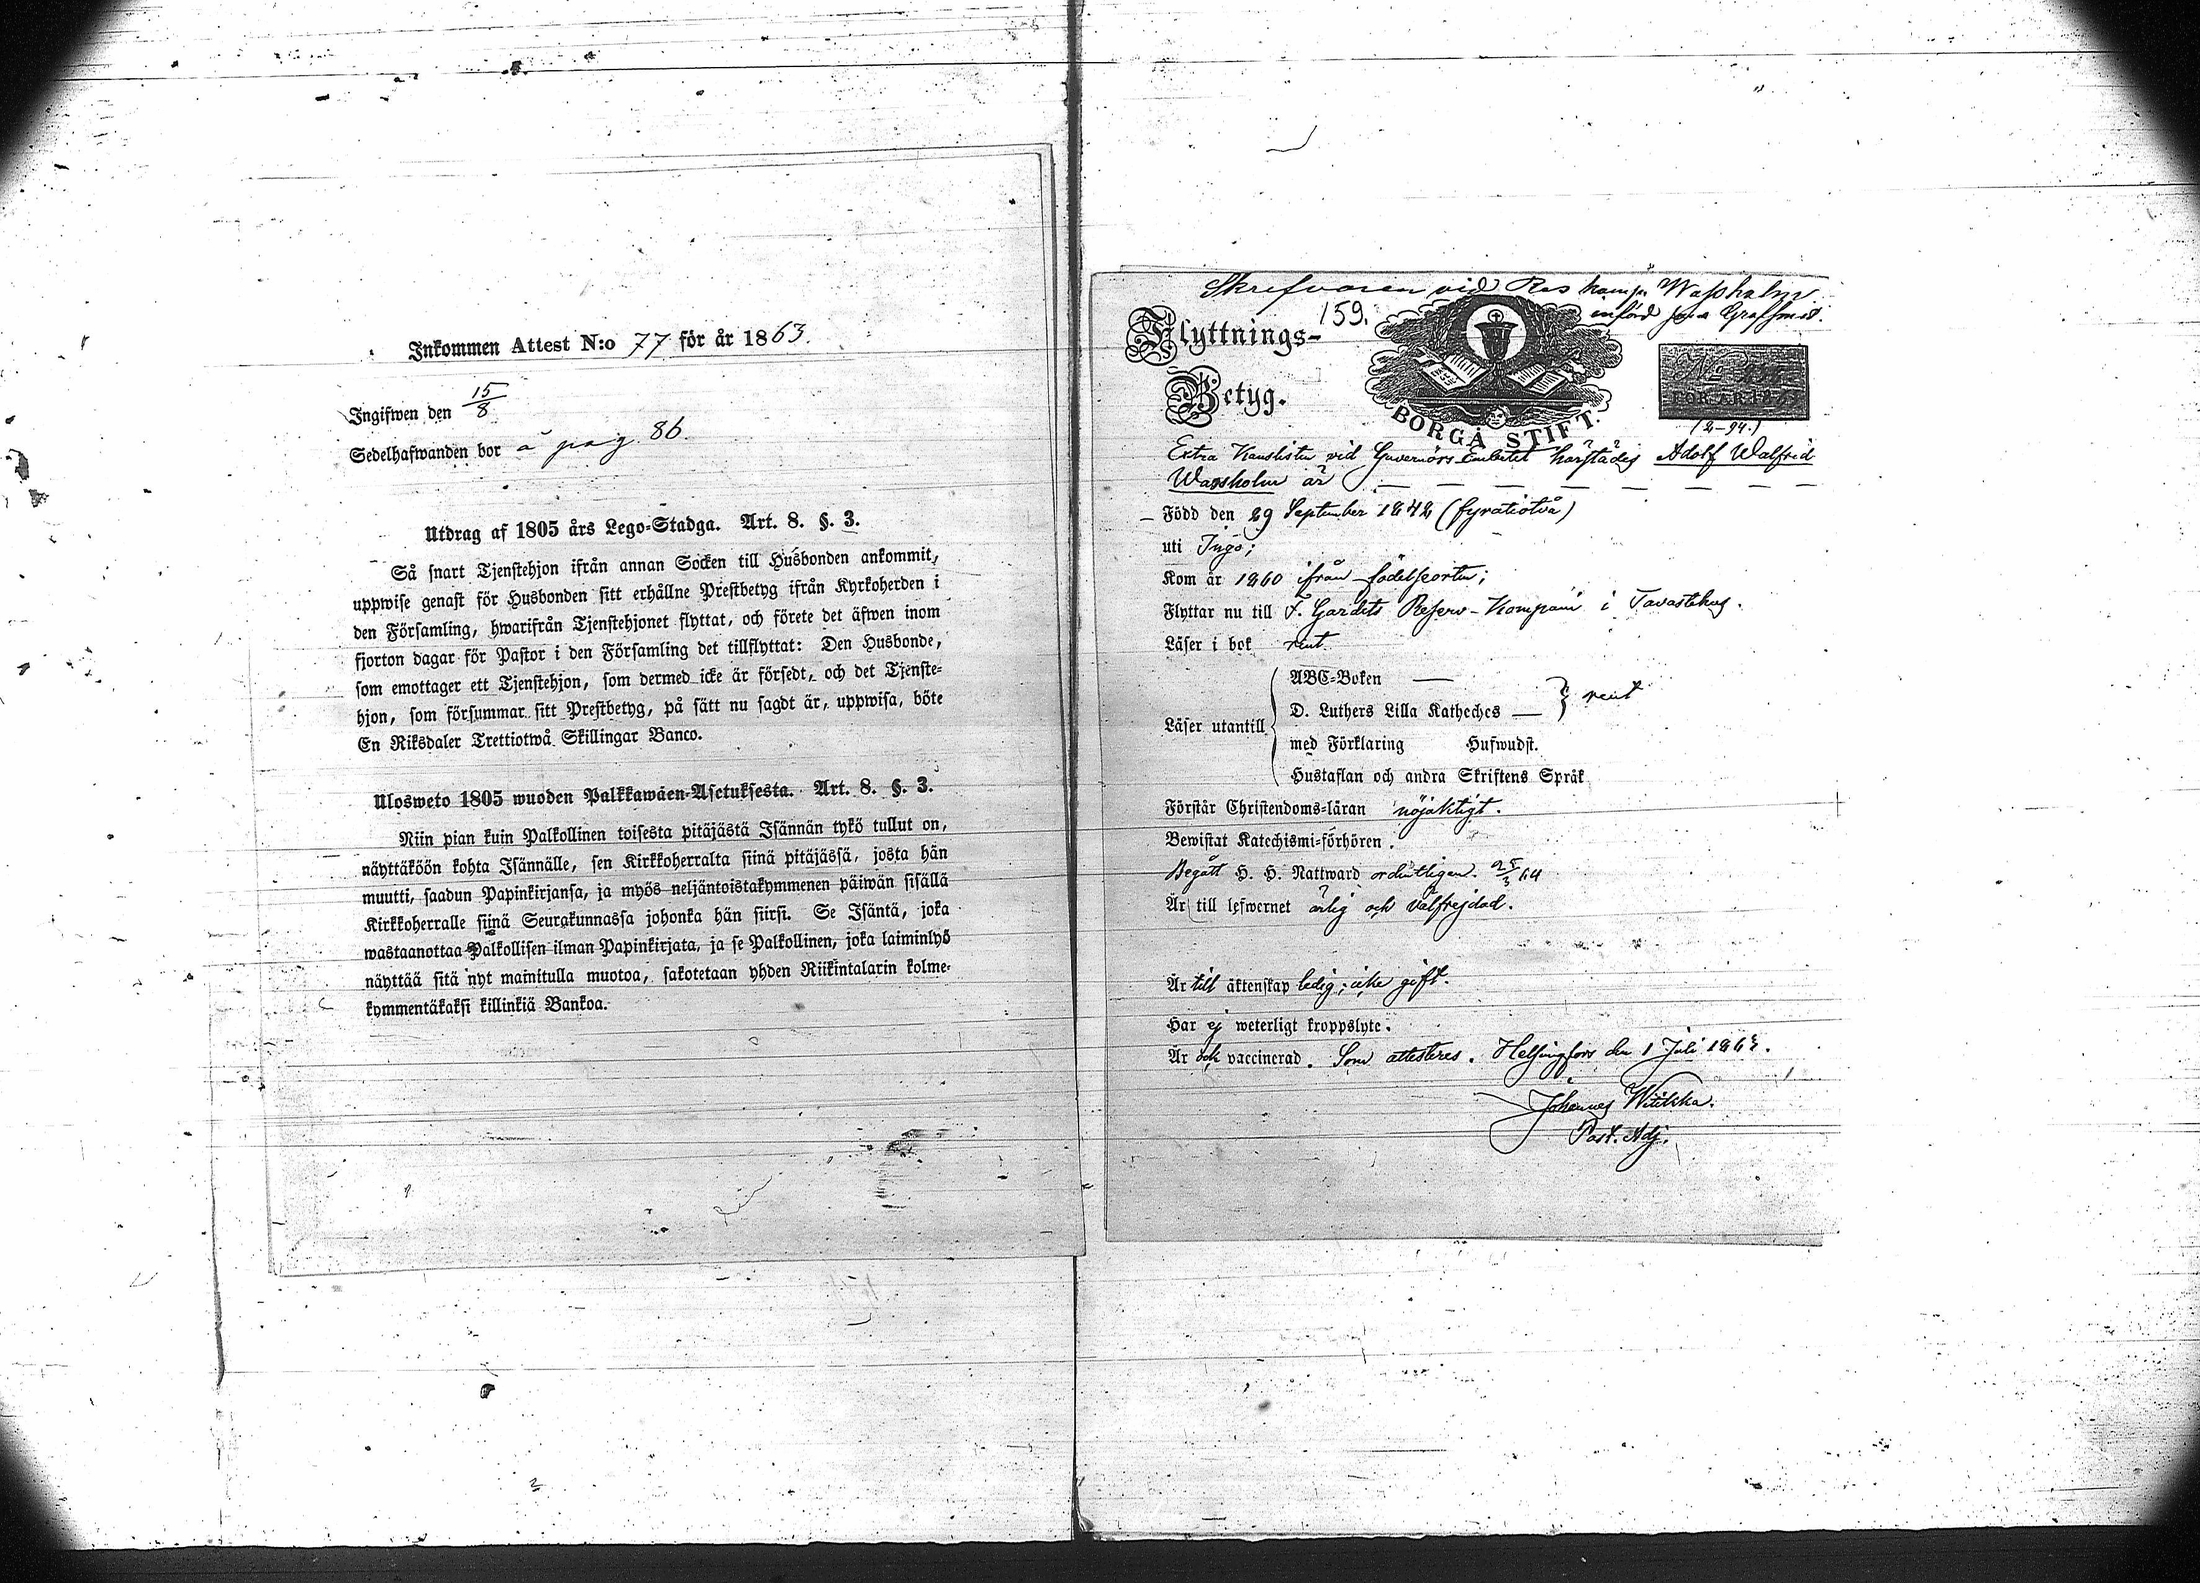 Inkommen Attest N:o 77 för år 1863.
Ingifwen den 15/8
Sedelhafwanden bor å pag. 86.
Utdrag af 1805 års Lego-Stadga. Art. 8. §. 3.
Så snart Tjenstehjon ifrån annan Socken till Husbonden ankommit,
uppwise genast för Husbonden sitt erhållne Prestbetyg ifrån Kyrkoherden i
den Församling, hwarifrån Tjenstehjonet flyttat, och förete det äfwen inom
fjorton dagar för Pastor i den Församling det tillflyttat: Den Husbonde,
som emottager ett Tjenstehjon, som dermed icke är försedt, och det Tjenste-
hjon, som försummar sitt Prestbetyg, på sätt nu sagdt är, uppwisa, böte
En Riksdaler Trettiotwå Skillingar Banco.
Ulosweto 1805 wuoden Palkkawäen-Asetuksesta. Art. 8. §. 3.
Niin pian kuin Palkollinen toisesta pitäjästä Isännän tykö tullut on,
näyttäköön kohta Isännälle, sen Kirkkoherralta siinä pitäjässä, josta hän
muutti, saadun Papinkirjansa, ja myös neljäntoistakymmenen päiwän sisällä
Kirkkoherralle siinä Seurakunnassa johonka hän siirsi. Se Isäntä, joka
wastaanottaa Palkollisen ilman Papinkirjata, ja se Palkollinen, joka laiminlyö
näyttää sitä nyt mainitulla muotoa, sakotetaan yhden Riikintalarin kolme-
kymmentäkaksi killinkiä Bankoa.
Skrifvaren vid Res komp. Wassholm
införd
159.
Flyttnings-
Betyg.
BORGÅ STIFT.
FÖR ÅR 1863
(2-94.)
Extra Kanslisten vid Guvernörs Embetet härstädes Adolf Walfrid
Wassholm är
Född den 29 September 1842 (fyratiotvå)
uti Ingo;
Kom år 1860 ifrån födelseorten;
Flyttar nu till F. Gardets Reserv-Kompani i Tavastehus.
Läser i bok rent
Läser utantill
ABC-Boken —
D. Luthers Lilla Katheches — } rent
med Förklaring Hufwudst.
Hustaflan och andra Skriftens Språk
Förstår Christendoms-läran nöjaktigt.
Bewistat Katechismi-förhören.
Begått H. H. Nattward ordentligen.
Är till lefwernet ärlig och välfrejdad.
Är till äktenskap ledig; icke gift.
Har ej weterligt kroppslyte.
Är och vaccinerad. Som attesteres. Helsingfors den 1 Juli 1863.
Johannes
Past. Adj.